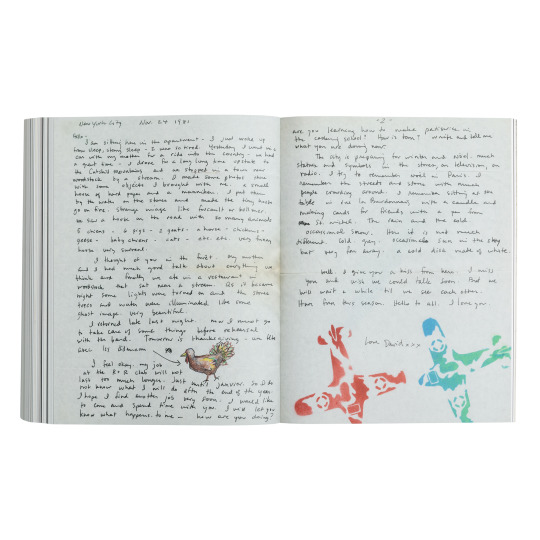 New York City Nov 24 1981
Hello -
I am sitting here in the apartment - I just woke up
from sleep, strong sleep - I was so tired. Yesterday I went in a
car with my mother for a ride into the country - we had
a great time - I drove for a long long time upstate to
the Catskill mountains and we stopped in a town near
woodstock by a stream. I made some photos there
with some objects I brought with me. a small
house of hard paper and a mannikin. I put them
by the water on the stones and made the tiny house
go on fire. strange image like
we saw a house on the road with so many animals
5 chiens - 6 pigs - 3 goats - a horse - chickens -
geese - baby chiens - cats - etc. etc. very funny
house very surreal.
I thought of you in the forest my mother
and I had much good talk about everything we
think and finally we ate in a restaurant in
woodstock that sat near a stream. As it became
night some lights were turned on and the stones
trees and water were illuminated like some
ghost image. very beautiful.
I returned late last night. now I must go
to take care of some things before rehearsal
with the band. Tomorrow is thanksgiving - we
I feel okay. my job
at the R+R club will not
last too much longer. Just until janvier. So I do
not know what I will do after the end of the year.
I hope I find another job very soon. I would like
to come and spend time with you. I will let you
know what happens to me - how are you doing?
-2-
are you learning how to make patisserie in
the cooking school? How is tom? write and tell me
what you are doing now.
The city is preparing for winter and noel. much
statues and symbols in the stores, on television,
radio. I try to remember noel in Paris. I
remember the streets and stores with much
people crowding around. I remember sitting at the
table in rue la Bourdonnais, with a candle and
making cards for friends with a pen from
St. michel. The rain and the cold
occasional snow. Here it is not much
different. cold grey. occasional sun in the sky
but very far away. a cold disk made of white
well. I give you a kiss from here. I miss
you and wish we could talk soon. But we
will wait a while til we see each other.
from this season. Hello to all. I love you
Love David xxx